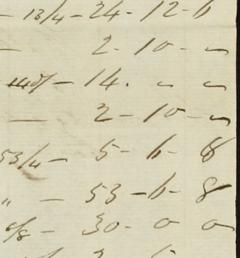 - 13/4 - 24 - 12 - 6
- 2 - 10 - ~
- 14 . ~ ~
- 2 - 10 - ~
53/4 - 5 - 6 - 8
" - 53 - 6 - 8
- 30 - 0 0